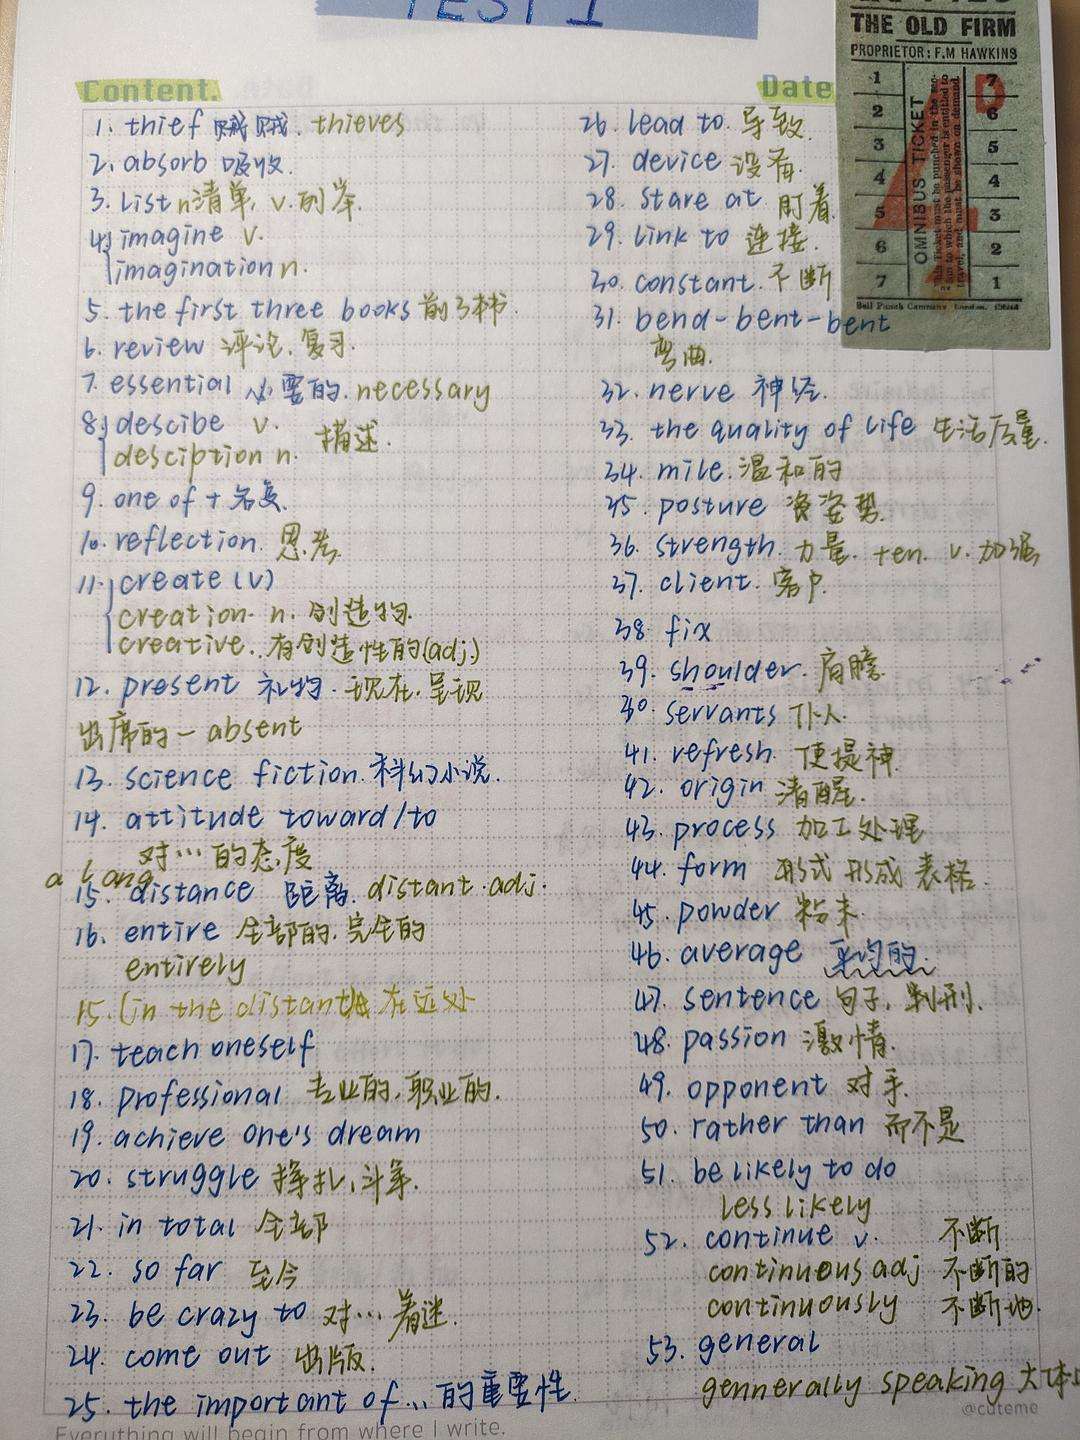 TEST 1
Content.
1. thief 贼贼. thieves
2. absorb 吸收.
3. List n清单, v.列举.
4. imagine v.
imagination n.
5. the first three books 前3本书.
6. review 评论.复习.
7. essential 必要的. necessary
8. descibe v. 描述.
desciption n.
9. one of + 名复.
10. reflection 思考.
11. create (v)
creation n. 创造物.
creative. 有创造性的(adj.)
12. present 礼物. 现在. 呈现
出席的 — absent
13. science fiction.科幻小说.
14. attitude toward/to
对…的态度
15. distance 距离. distant.adj.
16. entire 全部的.完全的
entirely
15. (in the distant 在远处
17. teach oneself
18. professional 专业的,职业的.
19. achieve one's dream
20. struggle 挣扎,斗争.
21. in total 全部
22. so far 至今
23. be crazy to 对…着迷.
24. come out 出版.
25. the important of … 的重要性.
Everything will begin from where I write.
Date
26. lead to 导致.
27. device 设备.
28. stare at 盯着
29. link to 连接.
30. constant. 不断
31. bend-bent-bent
弯曲.
32. nerve 神经.
33. the quality of life 生活质量.
34. mile.温和的
35. posture 姿势.
36. strength. 力量. +en. v. 加强
37. client. 客户.
38. fix
39. shoulder. 肩膀.
30. servants 仆人.
41. refresh. 使提神.
42. origin 清醒.
43. process 加工处理
44. form 形式 形成 表格.
45. powder 粉末.
46. average 平均的.
47. sentence 句子, 判刑.
48. passion 激情.
49. opponent 对手.
50. rather than 而不是
51. be likely to do
less likely
52. continue v. 不断
continuous adj 不断的
continuously 不断地.
53. general
gennerally speaking 大体
@cuteme
THE OLD FIRM
PROPRIETOR: F.M HAWKINS
1 7
2 6
3 5
4 4
5 3
6 2
7 1
OMNIBUS TICKET
Bell Punch Company, London.